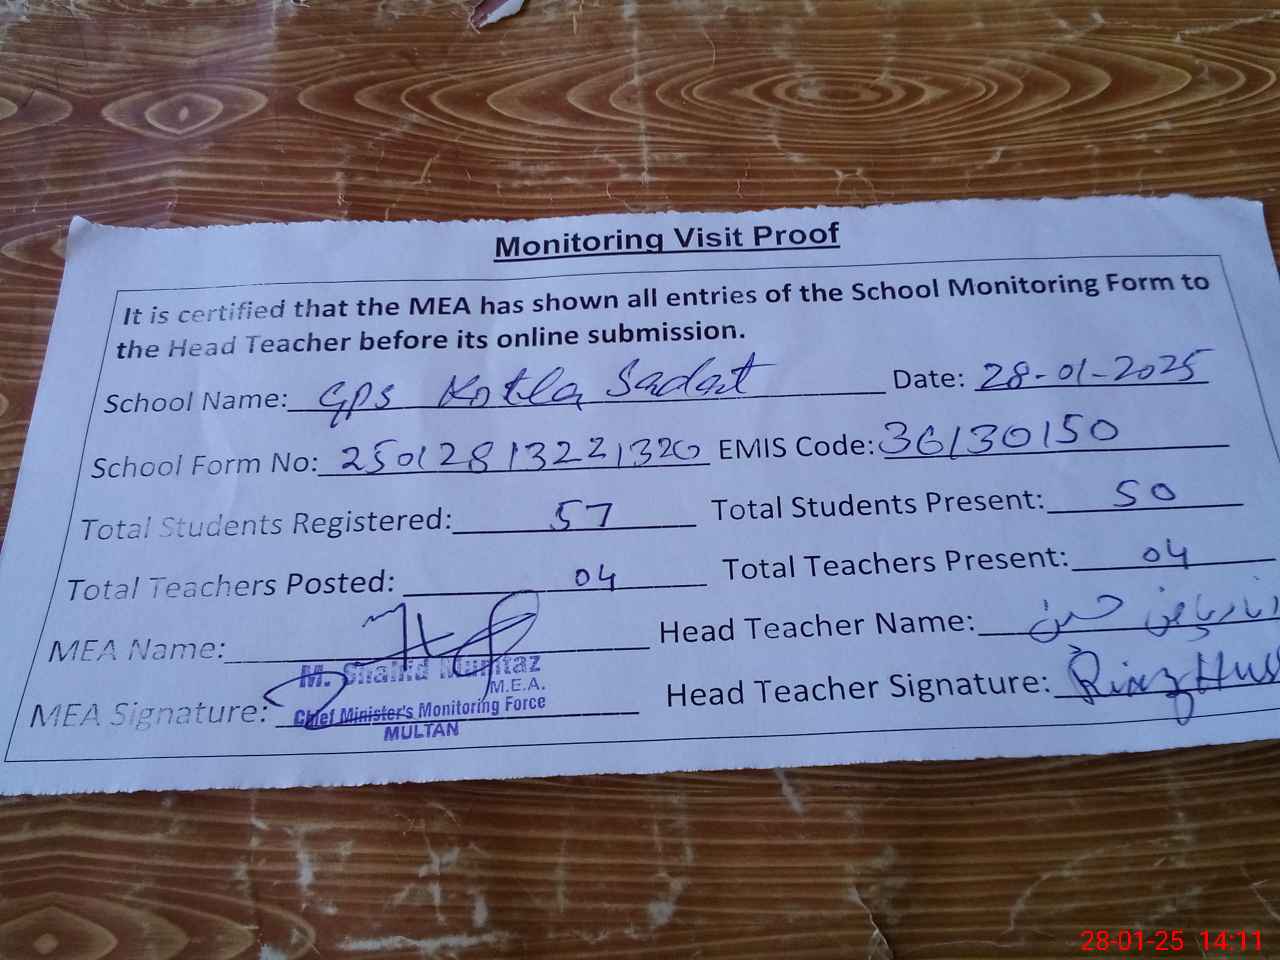 Monitoring Visit Proof
It is certified that the MEA has shown all entries of the School Monitoring Form to
the Head Teacher before its online submission.
School Name: GPS Kotla Sadat Date: 28-01-2025
School Form No: 25012813221320 EMIS Code: 36130150
Total Students Registered: 57 Total Students Present: 50
Total Teachers Posted: 04 Total Teachers Present: 04
MEA Name: Head Teacher Name: حسین
M. Shahid Mumtaz
M.E.A.
MEA Signature: Head Teacher Signature: Riaz Hus
Chief Minister's Monitoring Force
MULTAN
28-01-25 14:11